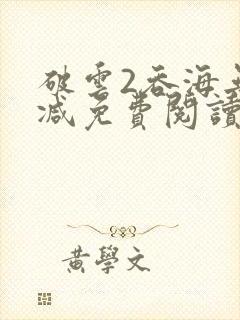 破雲2吞海
減免費閱讀
黃學文